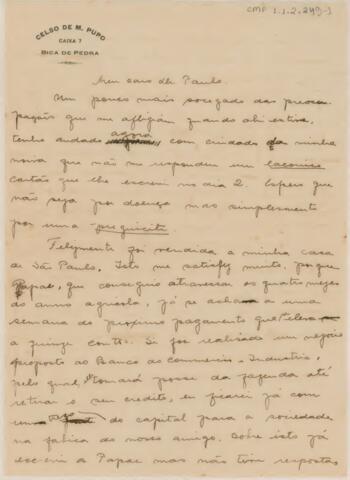 CMP 1.1.2.249-1
CELSO DE M. PUPO
CAIXA 7
BICA DE PEDRA
Meu caro dr. Paulo.
Um pouco mais socegado das preoccu-
pações que me affligiam quando ahi estive,
tenho andado agora com cuidado da minha
noiva que não me respondeu um laconico
cartão que lhe escrevi no dia 2. Espero que
não seja por doença mas simplesmente
por uma preguicite
Felizmente foi vendida a minha casa
de São Paulo. Isto me satisfez muito, porque
Papae, que conseguio atravessar os quatro mezes
do anno agricola, já se achava a uma
semana do proximo pagamento que
a quinze contos. Si for realisado um negocio
proposto ao Banco do Commercio e Industria,
pelo qual, tomará posse da fazenda até
retirar o seu credito, eu ficarei já com
do capital para a sociedade
na fabrica do nosso amigo. Sobre isto já
escrevi a Papae mas não tive respostas